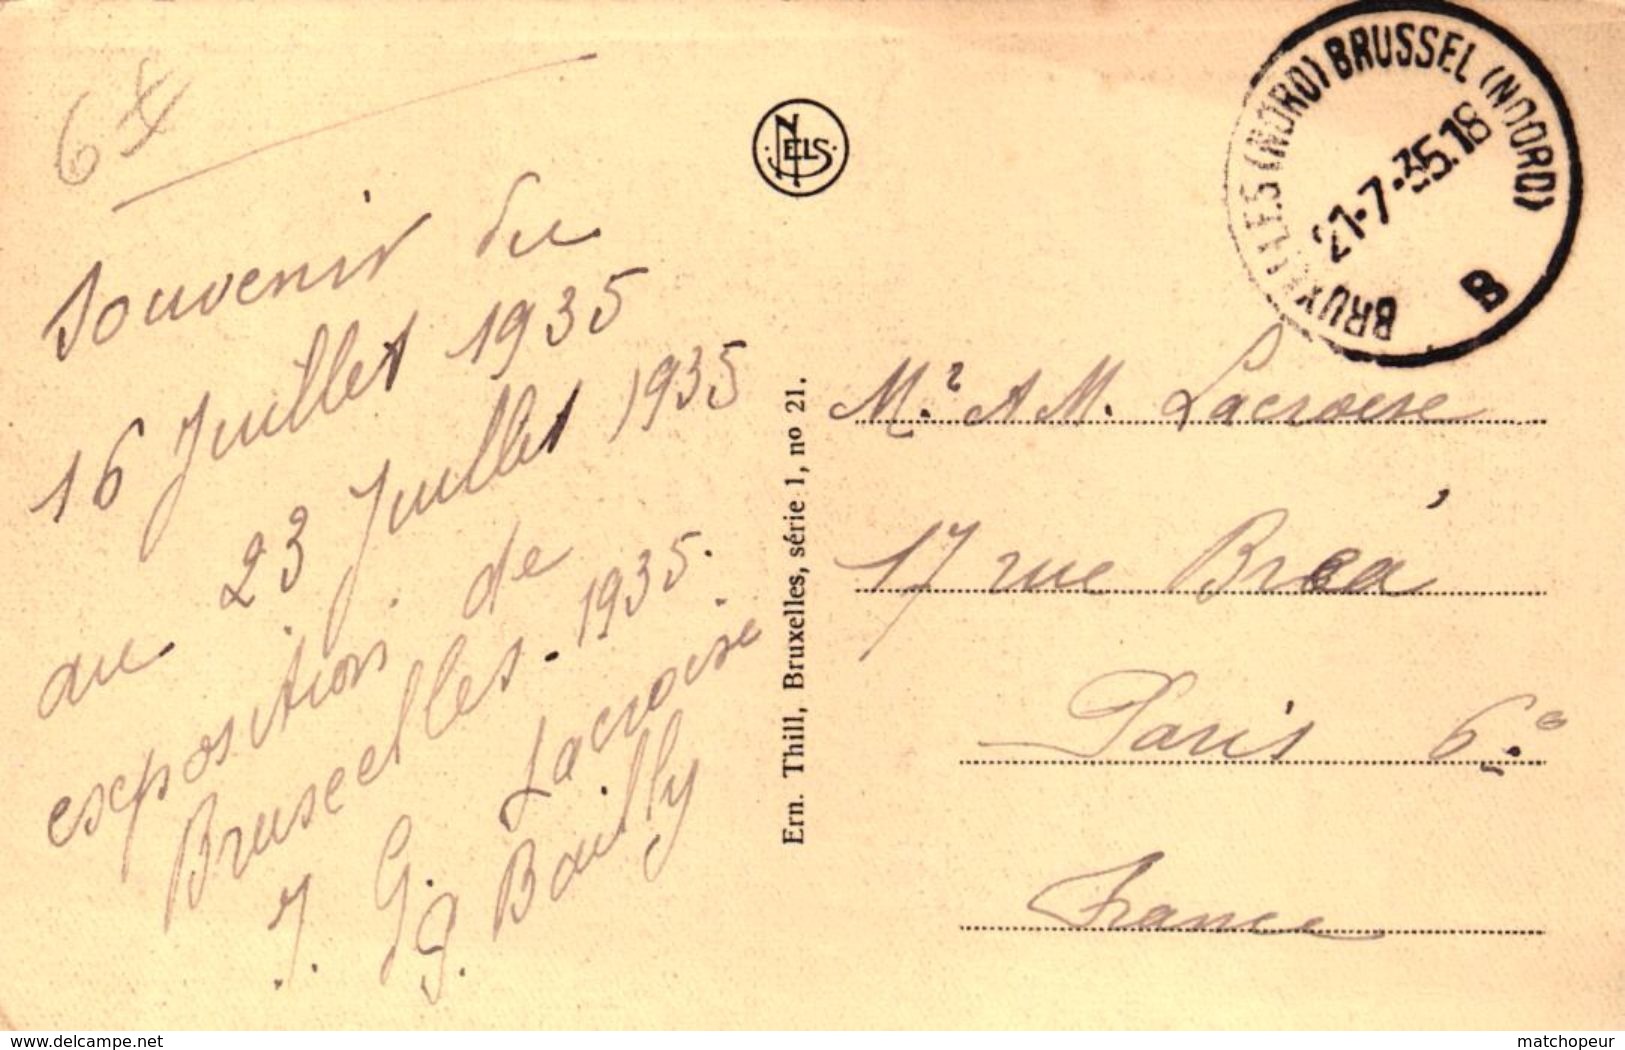 6 X
Souvenir du
16 Juillet 1935
au 23 Juillet 1935
exposition de
Bruxelles. 1935.
J. G. Lacroix
G. Bailly
NELS
Ern. Thill, Bruxelles, série 1, no 21.
BRUXELLES (NORD) BRUSSEL (NOORD)
21-7-35.18
B
Mr A M. Lacroix
17 rue Bréa
Paris 6e
France
www.delcampe.net
matchopeur